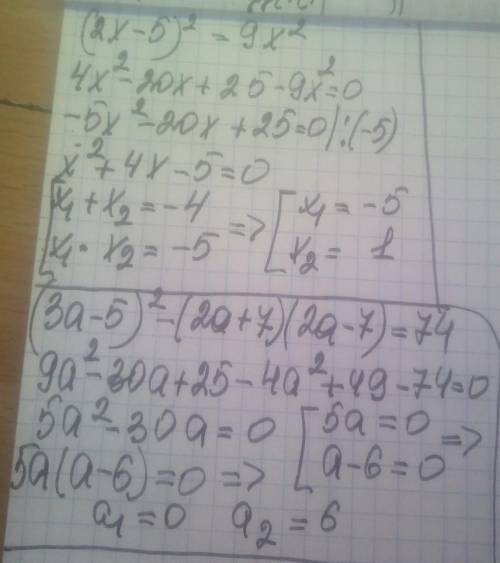 (2x-5)² = 9x²
4x²-20x+25-9x²=0
-5x²-20x+25=0|:(-5)
x²+4x-5=0
[x₁+x₂=-4
x₁·x₂=-5 => [x₁=-5
x₂=1
(3a-5)²-(2a+7)(2a-7)=74
9a²-30a+25-4a²+49-74=0
5a²-30a=0
5a(a-6)=0 => [5a=0
a-6=0 =>
a₁=0 a₂=6